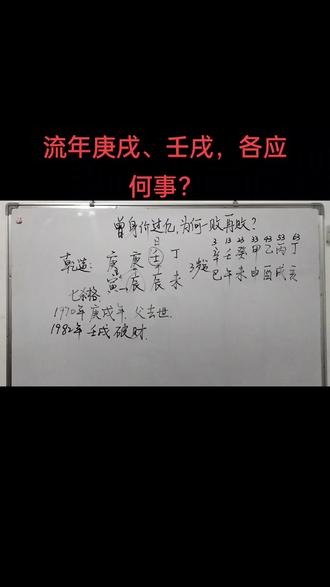 流年庚戌、壬戌，各应
何事？
曾身价过亿，为何一败再败？
日
3 13 23 33 43 53 63
乾造：庚 庚 壬 丁 辛 壬 癸 甲 乙 丙 丁
寅 辰 辰 未 3岁起 巳 午 未 申 酉 戌 亥
七杀格
1970年庚戌年，父去世.
1982年壬戌破财.